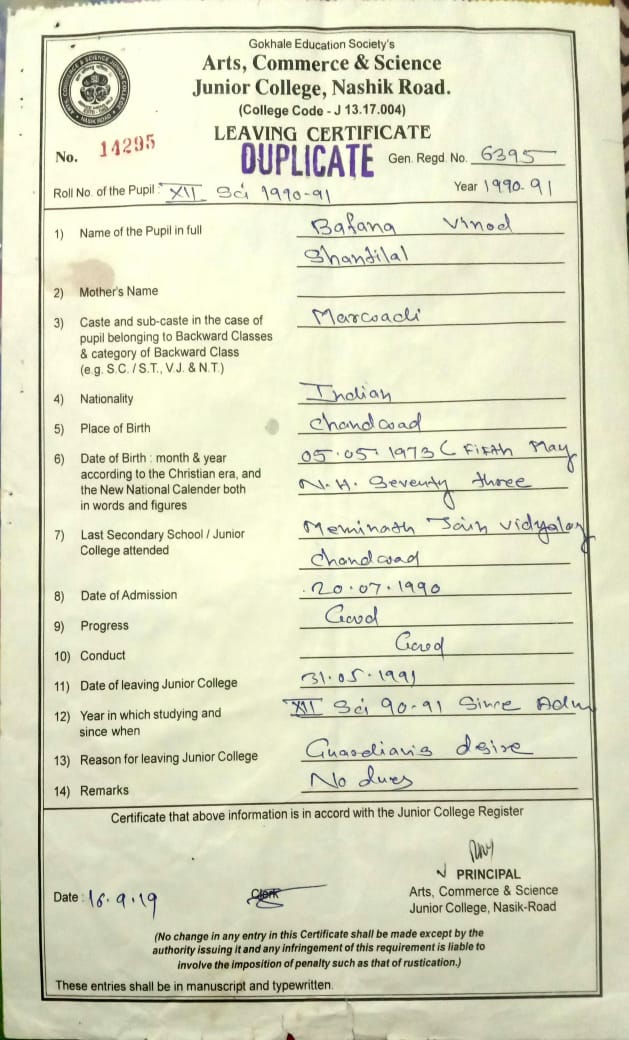 Gokhale Education Society's
Arts, Commerce & Science
Junior College, Nashik Road.
(College Code - J 13.17.004)
LEAVING CERTIFICATE
No. 14295 DUPLICATE Gen. Regd. No. 6395
Roll No. of the Pupil : XII Sci 1990-91 Year 1990-91
1) Name of the Pupil in full Bafana Vinod
Shantilal
2) Mother's Name
3) Caste and sub-caste in the case of Marwadi
pupil belonging to Backward Classes
& category of Backward Class
(e.g. S.C. / S.T., V.J. & N.T.)
4) Nationality Indian
5) Place of Birth Chandwad
6) Date of Birth : month & year 05.05.1973 ( Fifth May
according to the Christian era, and N.H. Seventy three
the New National Calender both
in words and figures
7) Last Secondary School / Junior Neminath Jain Vidyalay
College attended Chandwad
8) Date of Admission 20.07.1990
9) Progress Good
10) Conduct Good
11) Date of leaving Junior College 31.05.1991
12) Year in which studying and XII Sci 90-91 Since Adm
since when
13) Reason for leaving Junior College Guardian's desire
14) Remarks No dues
Certificate that above information is in accord with the Junior College Register
PRINCIPAL
Date : 16.9.19 Clerk Arts, Commerce & Science
Junior College, Nasik-Road
(No change in any entry in this Certificate shall be made except by the
authority issuing it and any infringement of this requirement is liable to
involve the imposition of penalty such as that of rustication.)
These entries shall be in manuscript and typewritten.